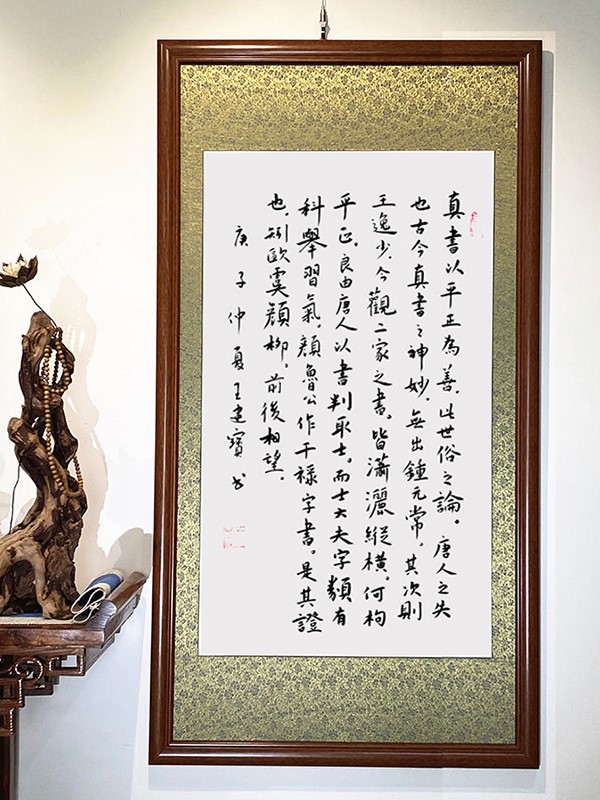 真書以平正為善,此世俗之論。唐人之失
也古今真書之神妙,無出鍾元常,其次則
王逸少,今觀二家之書。皆瀟灑縱橫,何拘
平正,良由唐人以書判取士。而士大夫字類有
科舉習氣,顏魯公作干祿字書。是其證
也,矧歐虞顏柳,前後相望,
庚子仲夏王建寶书